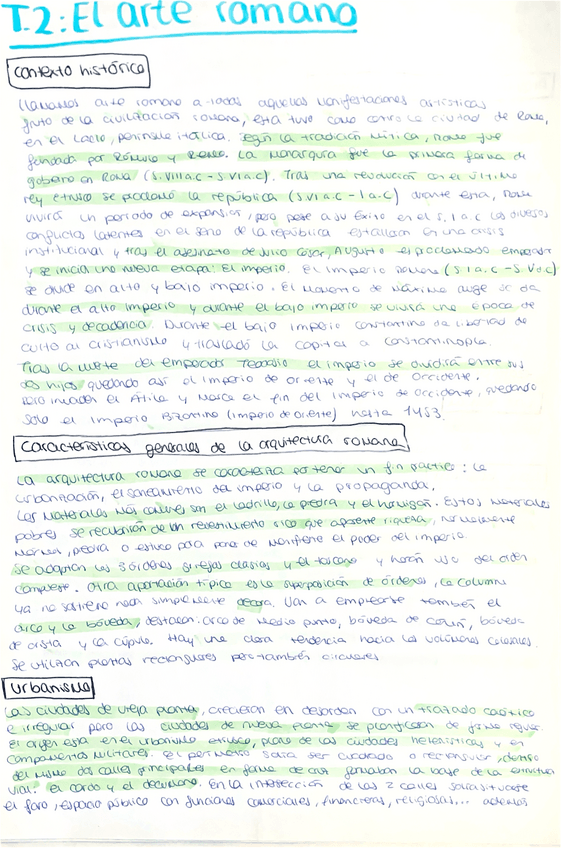 T.2: El arte romano
Contexto histórico
Llamamos arte romano a todas aquellas manifestaciones artísticas
fruto de la civilización romana, esta tuvo como centro la ciudad de Roma,
en el Lacio, península itálica. Según la tradición mítica, Roma fue
fundada por Rómulo y Remo. La monarquía fue la primera forma de
gobierno en Roma (S.VIII a.C - S VI a.C). Tras una revolución con el último
rey etrusco se proclamó la república (S.VI a.C - I a.C) durante esta, Roma
vivirá un periodo de expansión, pero pese a su éxito en el S. I a.C los diversos
conflictos latentes en el seno de la república estallan en una crisis
institucional y tras el asesinato de Julio César, Augusto es proclamado emperador
y se inicia una nueva etapa: El imperio. El imperio romano (S I a.C - S. V d.C)
se divide en alto y bajo imperio. El momento de máximo auge se da
durante el alto imperio y durante el bajo imperio se vivirá una época de
crisis y decadencia. Durante el bajo imperio Constantino da libertad de
culto al cristianismo y trasladó la capital a Constantinopla.
Tras la muerte del emperador Teodosio el imperio se dividirá entre sus
dos hijos quedando así el imperio de oriente y el de occidente.
invaden Atila y marca el fin del imperio de occidente, quedando
solo el imperio Bizantino (imperio de oriente) hasta 1453.
Características generales de la arquitectura romana
La arquitectura romana se caracteriza por tener un fin práctico: la
urbanización, el saneamiento del imperio y la propaganda.
Los materiales más comunes son el ladrillo, la piedra y el hormigón. Estos materiales
pobres se recubrirán de un revestimiento rico que aparente riqueza, normalmente
mármol, piedra o estuco para poner de manifiesto el poder del imperio.
Se adoptan los 3 órdenes griegos clásicos y el toscano y harán uso del orden
compuesto. Otra aportación típica es la superposición de órdenes, la columna
ya no sostiene nada simplemente decora. Van a emplearse también el
arco y la bóveda, destacan: arco de medio punto, bóveda de cañón, bóveda
de arista y la cúpula. Hay una clara tendencia hacia los volúmenes colosales.
Se utilizan plantas rectangulares pero también circulares
Urbanismo
Las ciudades de vieja planta, crecieron en desorden con un trazado caótico
e irregular pero las ciudades de nueva planta se planifican de forma regular
el origen está en el urbanismo etrusco, plano de las ciudades helenísticas y en
campamentos militares. El perímetro solía ser cuadrado o rectangular, dentro
del mismo dos calles principales en forma de cruz formaban la base de la estructura
vial: el cardo y el decumano. En la intersección de las 2 calles solía situarse
el foro, espacio público con funciones comerciales, financieras, religiosas... además